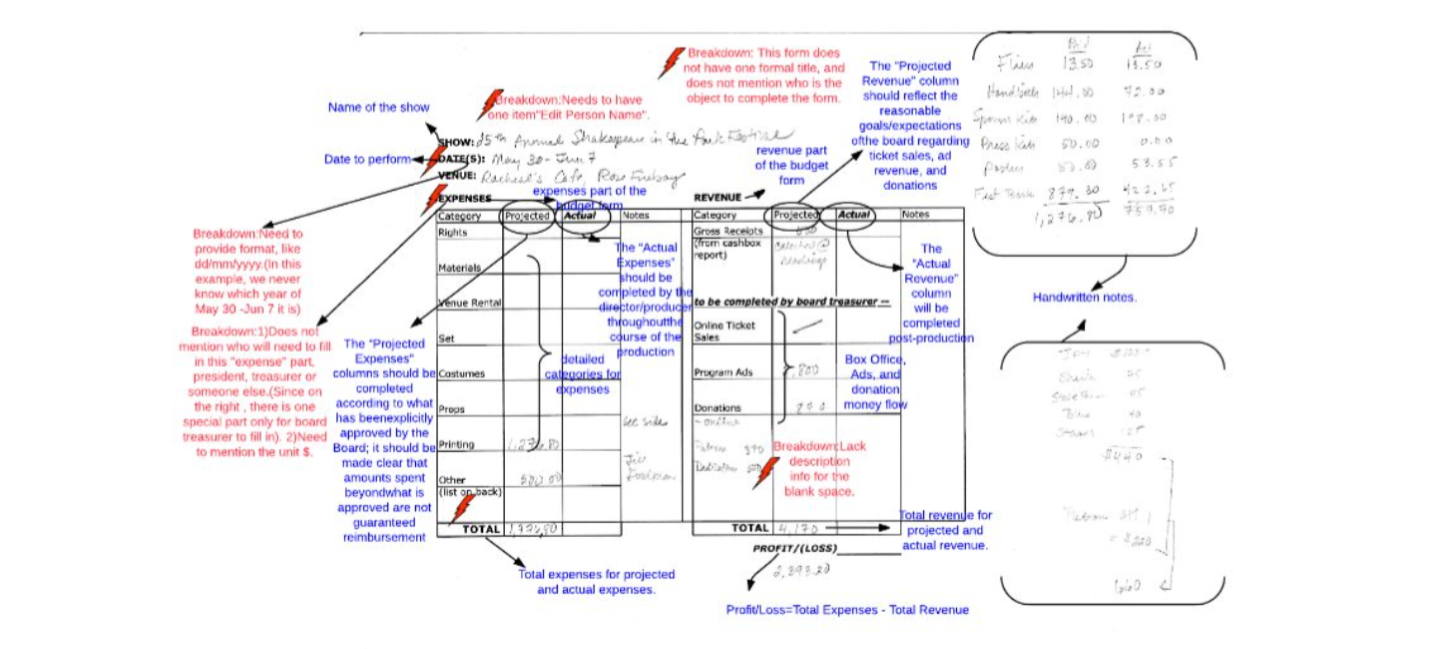 Breakdown: This form does
not have one formal title, and
does not mention who is the
object to complete the form.
The "Projected
Revenue" column
should reflect the
reasonable
goals/expectations
ofthe board regarding
ticket sales, ad
revenue, and
donations
Name of the show
Breakdown:Needs to have
one item"Edit Person Name".
SHOW: 25th Annual Shakespeare in the Park Festival
Date to perform
DATE(S): May 30 - Jun 7
VENUE: Cafe, Rose
revenue part
of the budget
form
expenses part of the
budget form
EXPENSES
REVENUE
Category Projected Actual Notes
Rights
Materials
Venue Rental
Set
Costumes
Props
Printing 1,276.80 see side
Other 500.00
(list on back)
TOTAL
Category Projected Actual Notes
Gross Receipts
(from cashbox
report)
to be completed by board treasurer --
Online Ticket
Sales
Program Ads 800
Donations
- online
Patron 370
TOTAL 4,170
PROFIT/(LOSS)
2,393.20
Breakdown:Need to
provide format, like
dd/mm/yyyy.(In this
example, we never
know which year of
May 30 -Jun 7 it is)
Breakdown:1)Does not
mention who will need to fill
in this "expense" part,
president, treasurer or
someone else.(Since on
the right , there is one
special part only for board
treasurer to fill in). 2)Need
to mention the unit $.
The "Projected
Expenses"
columns should be
completed
according to what
has beenexplicitly
approved by the
Board; it should be
made clear that
amounts spent
beyondwhat is
approved are not
guaranteed
reimbursement
The "Actual
Expenses"
should be
completed by the
director/producer
throughoutthe
course of the
production
detailed
categories for
expenses
The
"Actual
Revenue"
column
will be
completed
post-production
Box Office,
Ads, and
donation
money flow
Breakdown:Lack
description
info for the
blank space.
Total revenue for
projected and
actual revenue.
Total expenses for projected
and actual expenses.
Profit/Loss=Total Expenses - Total Revenue
Act
Fliers 13.50 13.50
144.00 72.00
Press Kits 50.00 0.00
Poster 53.55
879.30 422.65
1,276.80 759.70
Handwritten notes.
$440
= $200
660